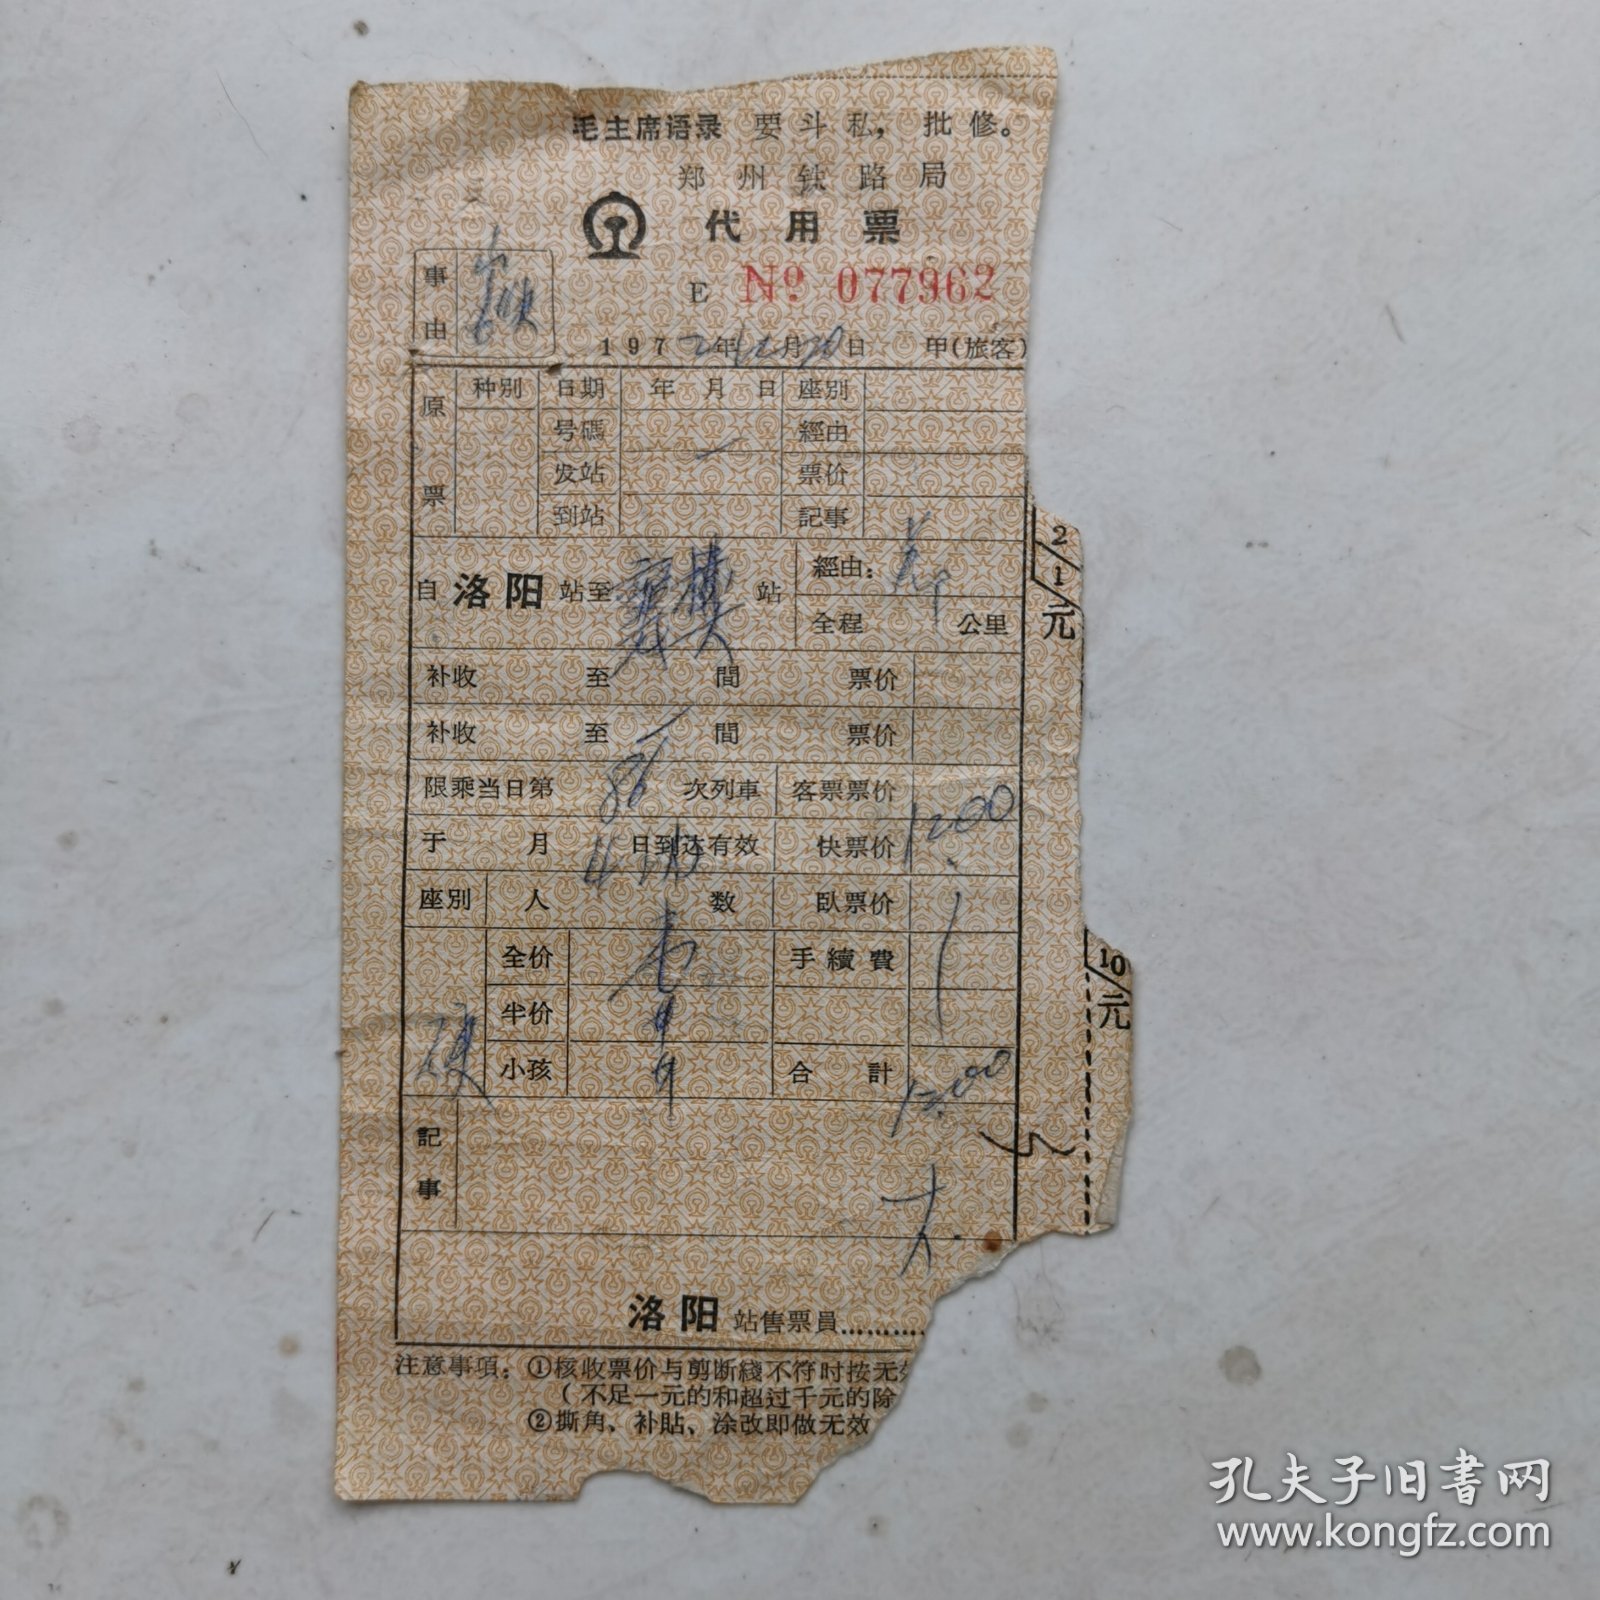 毛主席语录 要斗私，批修。
郑州铁路局
代用票
E № 077962
事由
1972年12月20日 甲(旅客)
原票 种别 日期 年月日 座别
号碼 經由
发站 票价
到站 記事
自洛阳站至 站 經由:
全程 公里
2/1元
补收 至 間 票价
补收 至 間 票价
限乘当日第 86 次列車 客票票价 12.00
于 月 日到达有效 快票价
座别 人数 臥票价
全价 壹 手續費
硬 半价
小孩 合計 12.00
10/元
記事
洛阳 站售票員………
注意事項：①核收票价与剪断綫不符时按无
(不足一元的和超过千元的除
②撕角、补貼、涂改即做无效
孔夫子旧书网
www.kongfz.com